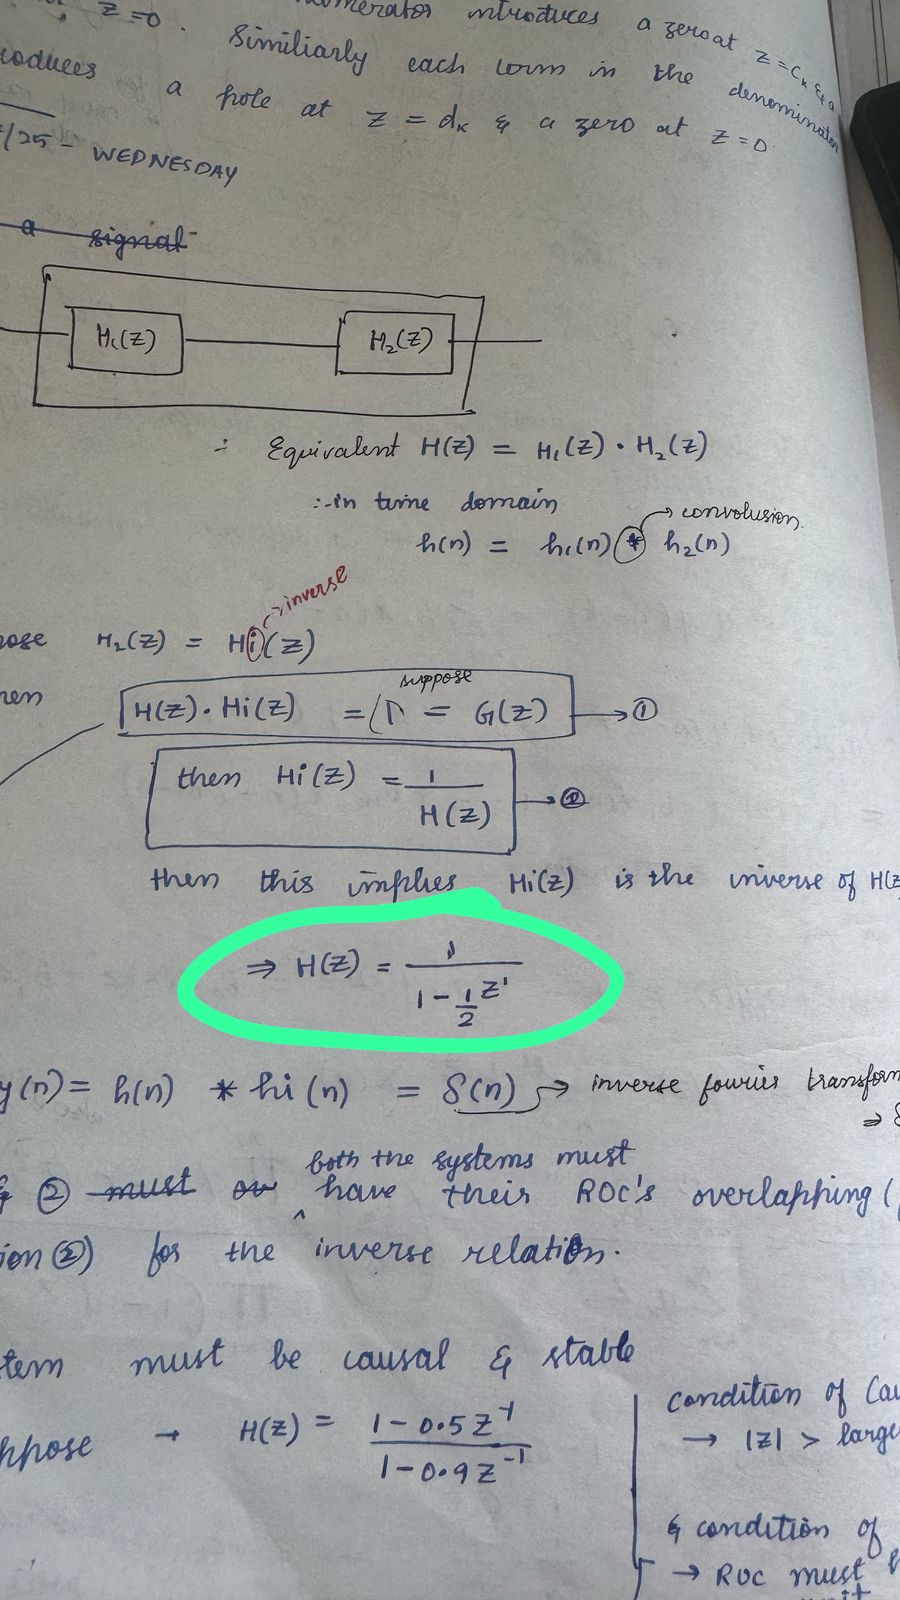 z=0. numerator introduces a zero at z=Cκ & a
Similiarly each term in the denominator
a pole at z = dκ & a zero at z=0
/25 - WEDNESDAY
a signal
H₁(z) H₂(z)
∴ Equivalent H(z) = H₁(z) · H₂(z)
∴ in time domain
→ convolusion.
h(n) = h₁(n) * h₂(n)
→ inverse
H₂(z) = Hi(z)
suppose
H(z). Hi(z) = 1 = G(z) → ①
then Hi(z) = 1/H(z) → ②
then this implies Hi(z) is the inverse of H(z
⇒ H(z) = 1/(1 - 1/2 z¹)
y(n) = h(n) * hi(n) = δ(n) → inverse fourier transform
⇒ δ
both the systems must
& ② must have their ROC's overlapping (
ion ②) for the inverse relation.
tem must be causal & stable
ppose → H(z) = (1 - 0.5z⁻¹)/(1 - 0.9z⁻¹)
condition of Cau
→ |z| > large
& condition of
→ ROC must
unit